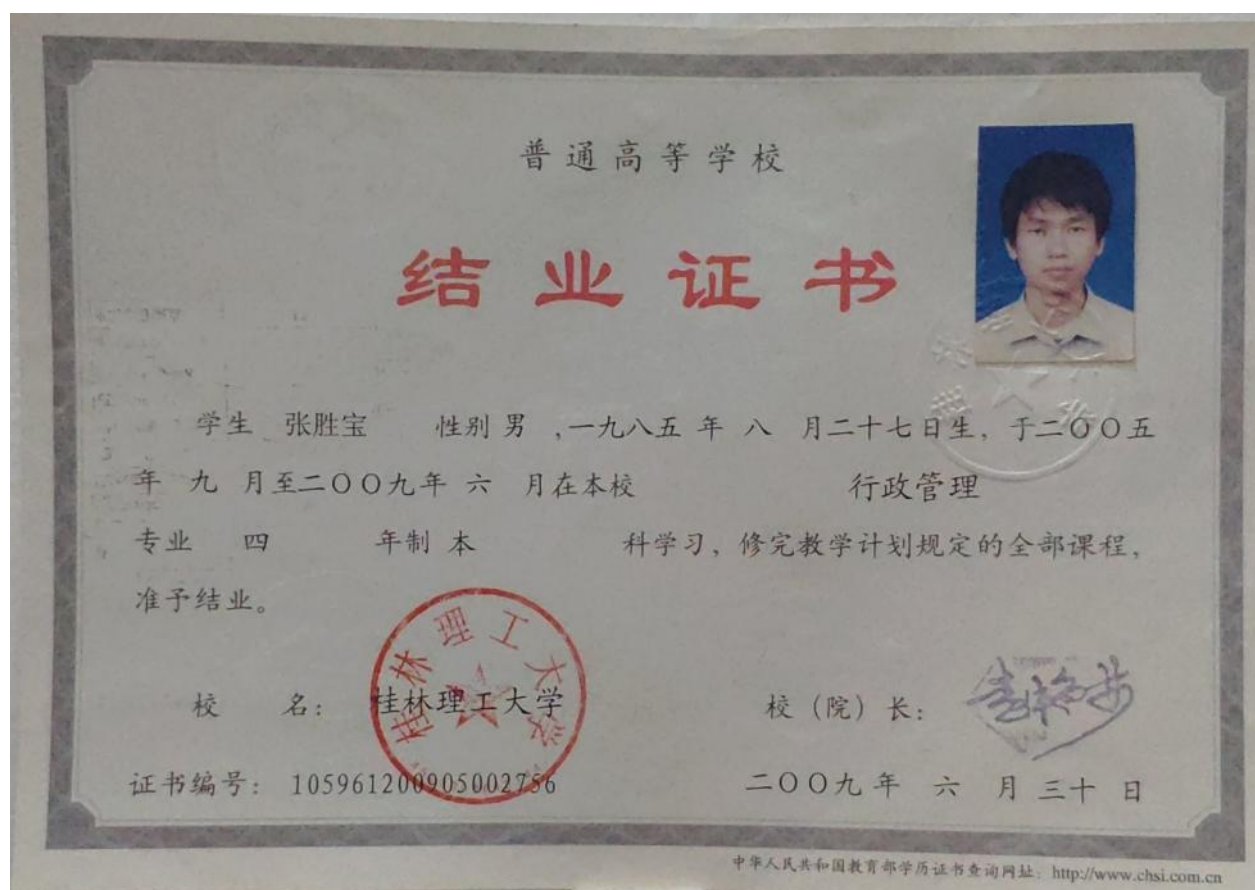 普通高等学校
结业证书
学生 张胜宝 性别 男 ,一九八五 年 八 月二十七日生, 于二〇〇五
年 九 月至二〇〇九年 六 月在本校 行政管理
专业 四 年制 本 科学习, 修完教学计划规定的全部课程,
准予结业。
桂林理工大学
校 名: 桂林理工大学 校 (院) 长:
证书编号: 105961200905002756 二〇〇九年 六 月 三十 日
中华人民共和国教育部学历证书查询网址: http://www.chsi.com.cn